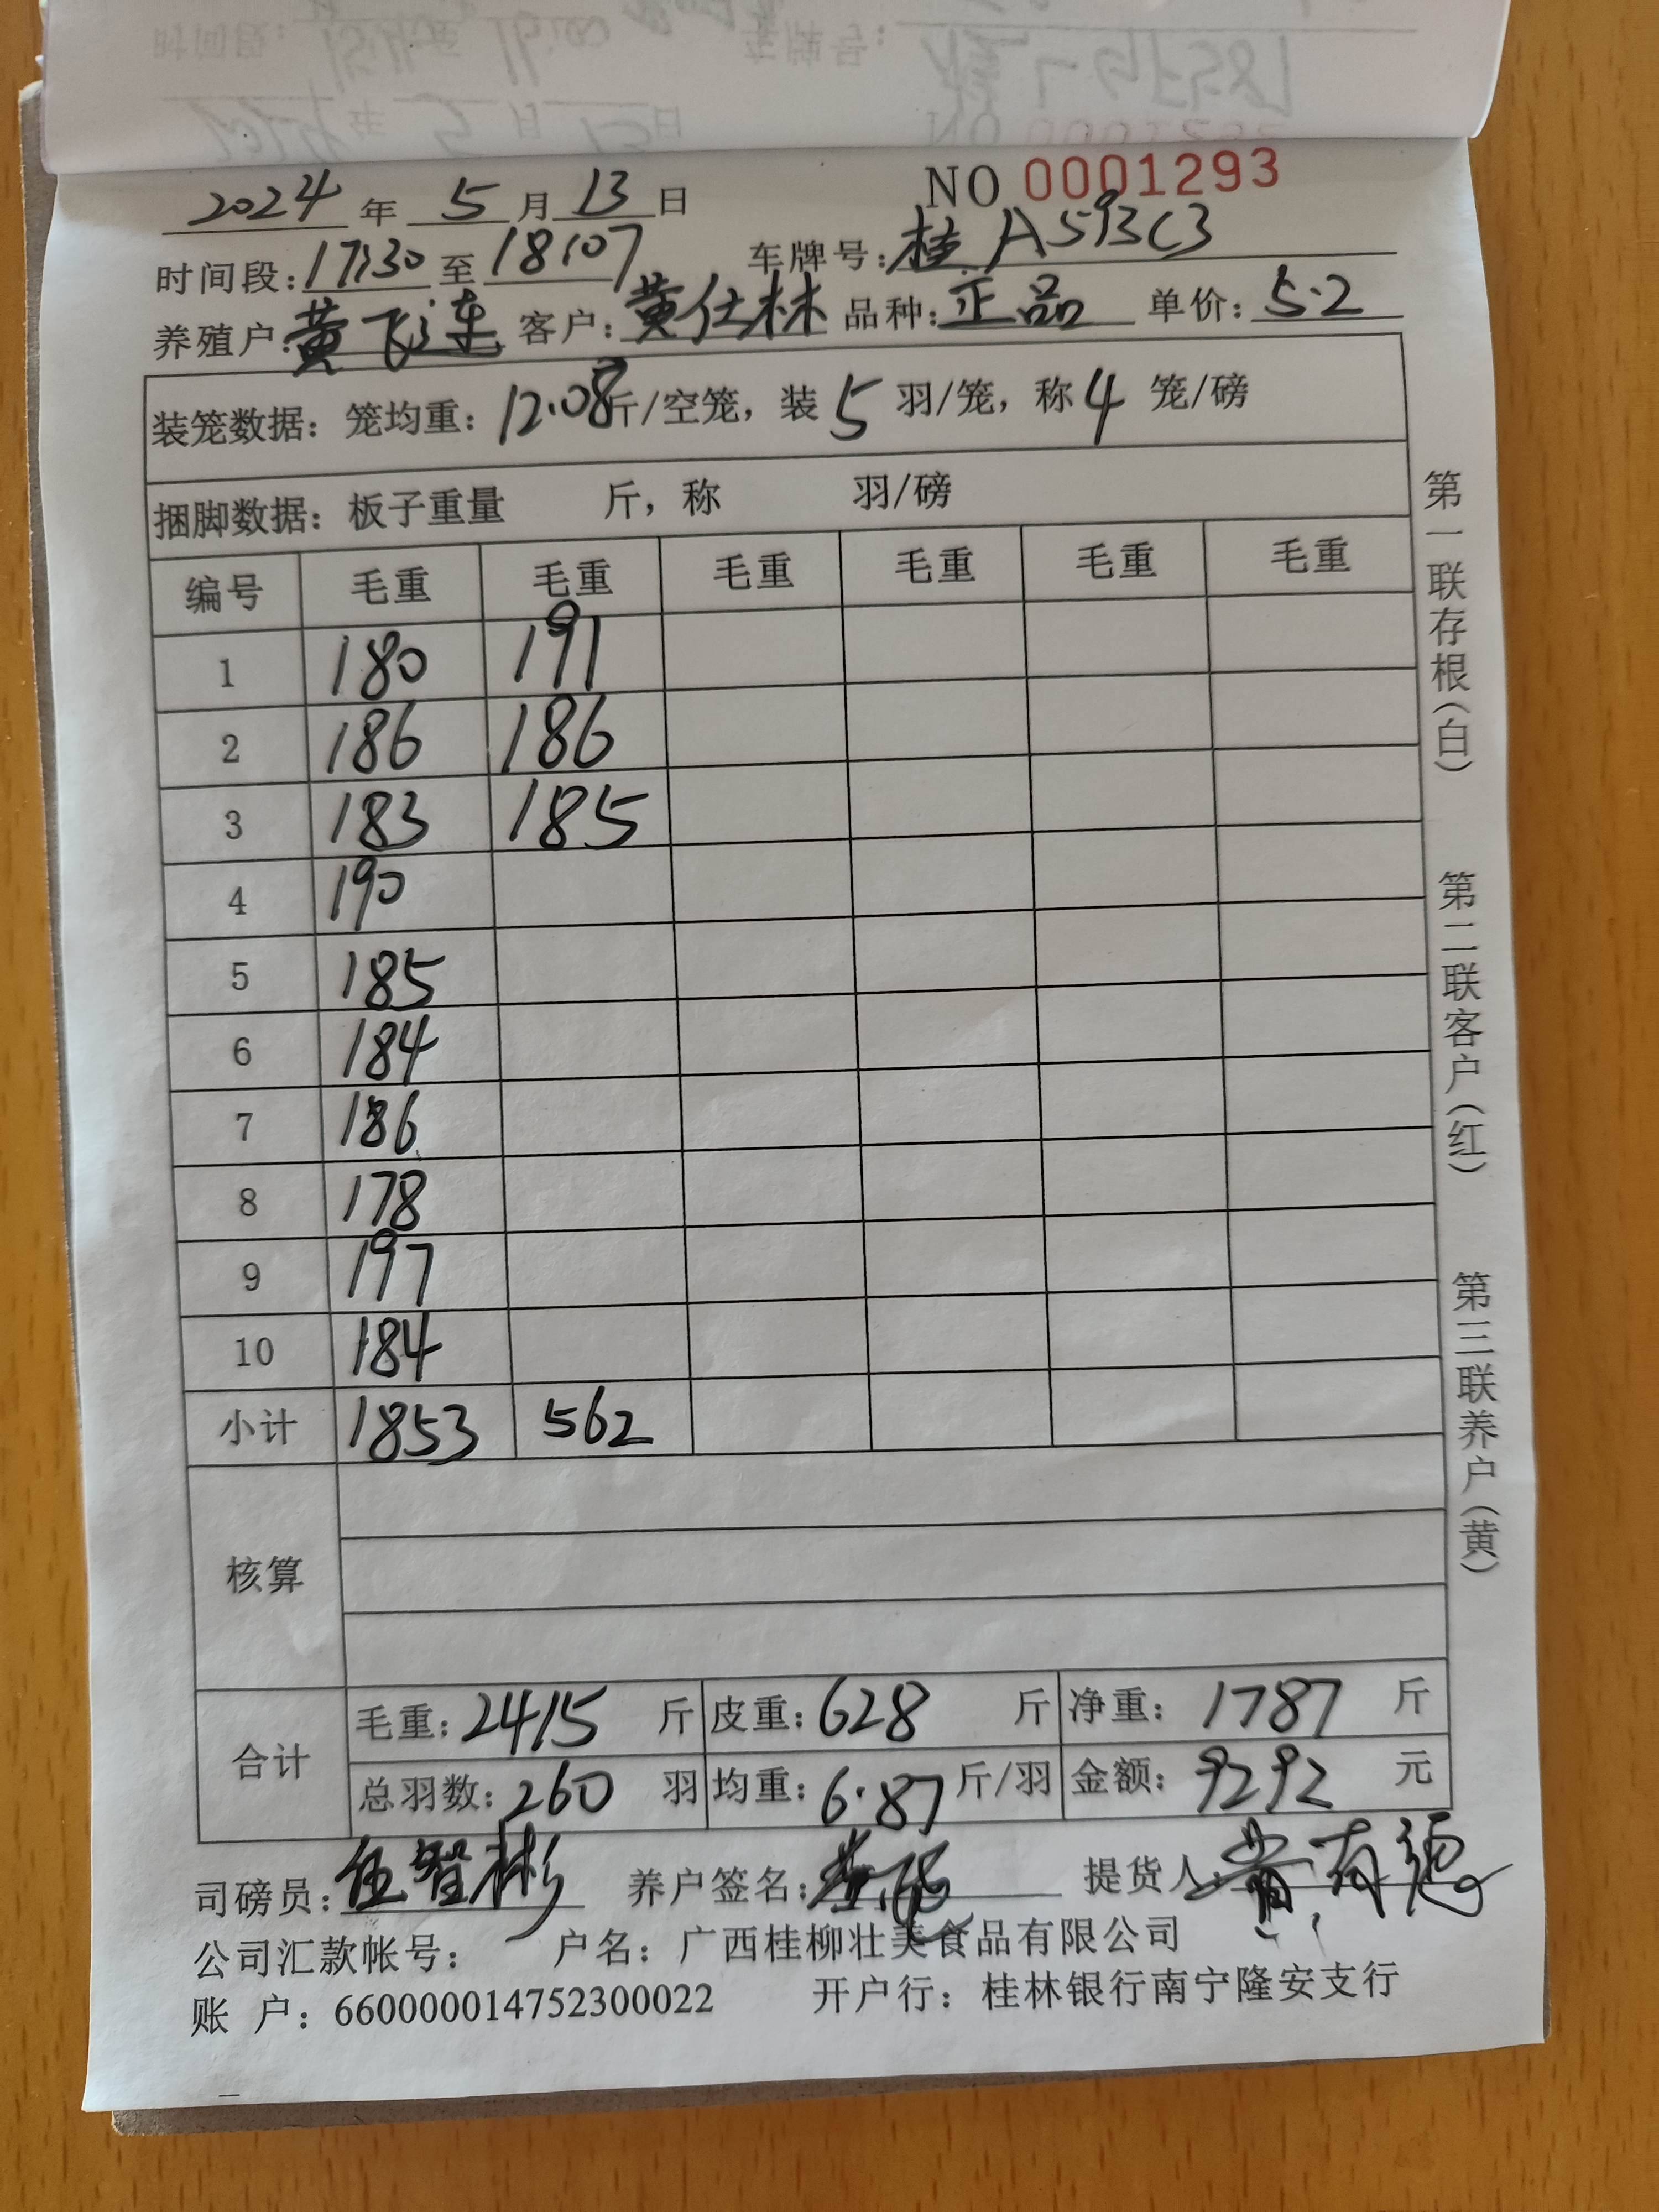 NO 0001293
2024年 5月13日
时间段:17:30至18:07 车牌号:桂A593C3
养殖户:黄飞连 客户:黄仕林 品种:正品 单价:5.2
装笼数据: 笼均重:12.08斤/空笼, 装5羽/笼, 称4笼/磅
捆脚数据: 板子重量 斤, 称 羽/磅
编号 毛重 毛重 毛重 毛重 毛重 毛重
1 180 191
2 186 186
3 183 185
4 190
5 185
6 184
7 186
8 178
9 197
10 184
小计 1853 562
核算
合计
毛重:2415斤 皮重:628斤 净重:1787斤
总羽数:260羽 均重:6.87斤/羽 金额:9292元
司磅员:伍智彬 养户签名: 提货人:黄有德
公司汇款帐号: 户名: 广西桂柳壮美食品有限公司
账 户: 660000014752300022 开户行: 桂林银行南宁隆安支行
第一联存根(白)
第二联客户(红)
第三联养户(黄)